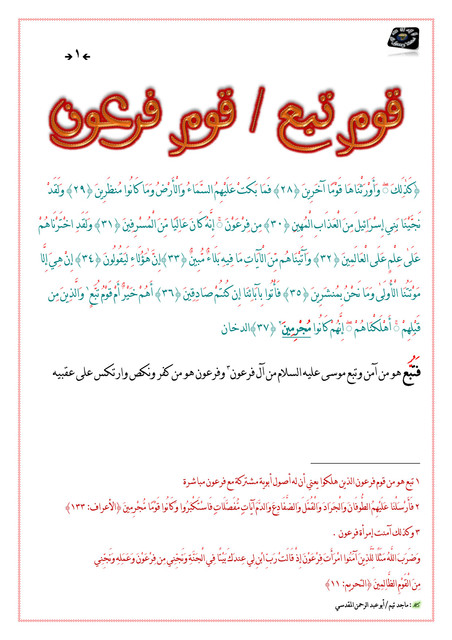 ١
قوم تبع / قوم فرعون
﴿كَذَٰلِكَ ۖ وَأَوْرَثْنَاهَا قَوْمًا آخَرِينَ ﴿٢٨﴾ فَمَا بَكَتْ عَلَيْهِمُ السَّمَاءُ وَالْأَرْضُ وَمَا كَانُوا مُنظَرِينَ ﴿٢٩﴾ وَلَقَدْ
نَجَّيْنَا بَنِي إِسْرَائِيلَ مِنَ الْعَذَابِ الْمُهِينِ ﴿٣٠﴾ مِن فِرْعَوْنَ ۚ إِنَّهُ كَانَ عَالِيًا مِّنَ الْمُسْرِفِينَ ﴿٣١﴾ وَلَقَدِ اخْتَرْنَاهُمْ
عَلَىٰ عِلْمٍ عَلَى الْعَالَمِينَ ﴿٣٢﴾ وَآتَيْنَاهُم مِّنَ الْآيَاتِ مَا فِيهِ بَلَاءٌ مُّبِينٌ ﴿٣٣﴾ إِنَّ هَٰؤُلَاءِ لَيَقُولُونَ ﴿٣٤﴾ إِنْ هِيَ إِلَّا
مَوْتَتُنَا الْأُولَىٰ وَمَا نَحْنُ بِمُنشَرِينَ ﴿٣٥﴾ فَأْتُوا بِآبَائِنَا إِن كُنتُمْ صَادِقِينَ ﴿٣٦﴾ أَهُمْ خَيْرٌ أَمْ قَوْمُ تُبَّعٍ ١ وَالَّذِينَ مِن
قَبْلِهِمْ ۚ أَهْلَكْنَاهُمْ ۖ إِنَّهُمْ كَانُوا مُجْرِمِينَ ٢ ﴿٣٧﴾ الدخان
فتبع هو من آمن وتبع موسى عليه السلام من آل فرعون ٣ وفرعون هو من كفر ونكص وارتكس على عقبيه
١ تبع هو من قوم فرعون الذين هلكوا يعني أن له أصول أبوية مشتركة مع فرعون مباشرة
٢ فَأَرْسَلْنَا عَلَيْهِمُ الطُّوفَانَ وَالْجَرَادَ وَالْقُمَّلَ وَالضَّفَادِعَ وَالدَّمَ آيَاتٍ مُّفَصَّلَاتٍ فَاسْتَكْبَرُوا وَكَانُوا قَوْمًا مُّجْرِمِينَ ﴿الأعراف: ١٣٣﴾
٣ وكذلك آمنت إمرأة فرعون .
وَضَرَبَ اللَّهُ مَثَلًا لِّلَّذِينَ آمَنُوا امْرَأَتَ فِرْعَوْنَ إِذْ قَالَتْ رَبِّ ابْنِ لِي عِندَكَ بَيْتًا فِي الْجَنَّةِ وَنَجِّنِي مِن فِرْعَوْنَ وَعَمَلِهِ وَنَجِّنِي
مِنَ الْقَوْمِ الظَّالِمِينَ ﴿التحريم: ١١﴾
: ماجد تيم / أبو عبد الرحمن المقدسي